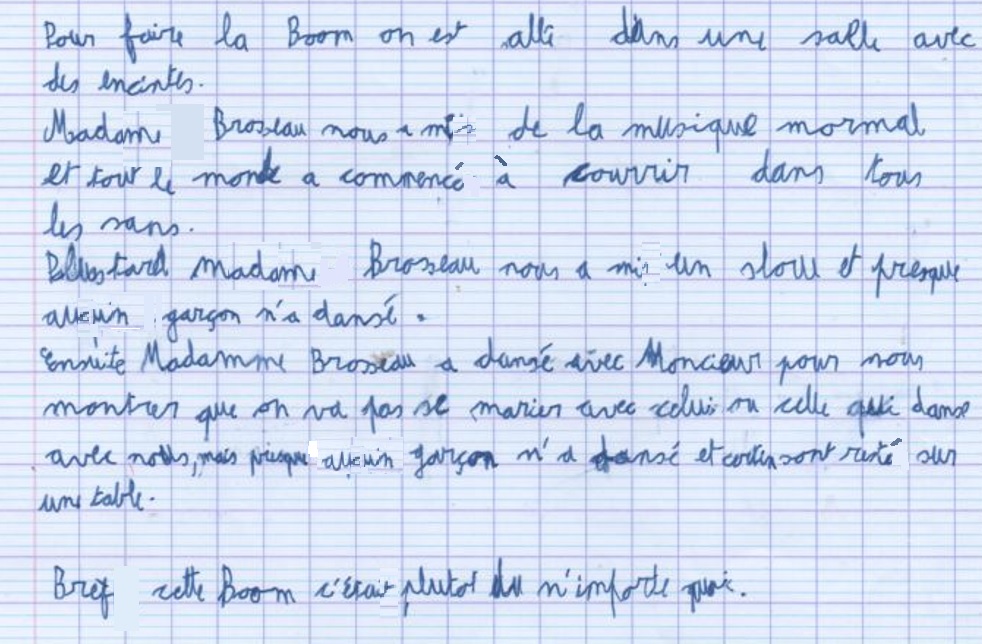 Pour faire la Boom on est allé dans une salle avec
des encintes.
Madame Brosseau nous a mis de la musique mormal
et tout le monde a commencé à courrir dans tous
les sans.
Plustard madame Brosseau nous a mi un slow et presque
aucuin garçon n'a dansé.
Ensuite Madamme Brosseau a dansé avec Moncieur pour nous
montrer que on va pas se marier avec celui ou celle qui danse
avec nous, mais presque aucuin garçon n'a dansé et certin sont resté sur
une table.
Bref cette Boom c'était plutot du n'importe quoi.